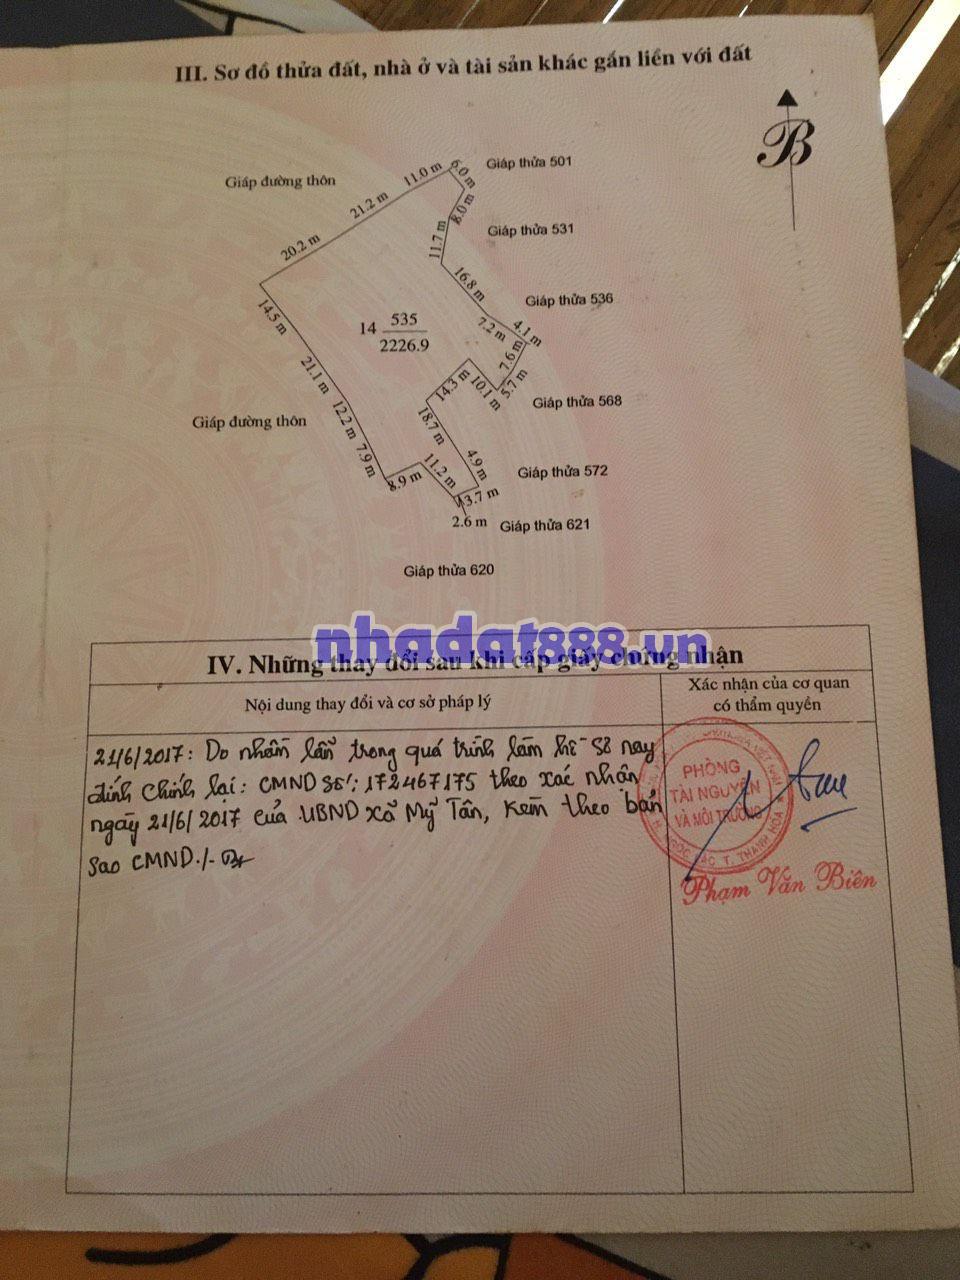 III. Sơ đồ thửa đất, nhà ở và tài sản khác gắn liền với đất
B
Giáp đường thôn
11.0 m
6.0 m
Giáp thửa 501
21.2 m
8.0 m
20.2 m
11.7 m
Giáp thửa 531
16.8 m
Giáp thửa 536
14.5 m
14 535
2226.9
7.2 m
4.1 m
7.6 m
21.1 m
14.3 m
10.1 m
5.7 m
Giáp thửa 568
Giáp đường thôn
12.2 m
18.7 m
7.9 m
11.2 m
4.9 m
Giáp thửa 572
8.9 m
3.7 m
2.6 m
Giáp thửa 621
Giáp thửa 620
nhadat888.vn
IV. Những thay đổi sau khi cấp giấy chứng nhận
Nội dung thay đổi và cơ sở pháp lý
Xác nhận của cơ quan
có thẩm quyền
21/6/2017: Do nhầm lẫn trong quá trình làm hồ sơ nay
đính chính lại: CMND số: 172467175 theo xác nhận
ngày 21/6/2017 của UBND xã Mỹ Tân, kèm theo bản
sao CMND./-
PHÒNG
TÀI NGUYÊN
VÀ MÔI TRƯỜNG
T. THANH HÓA
Phạm Văn Biên